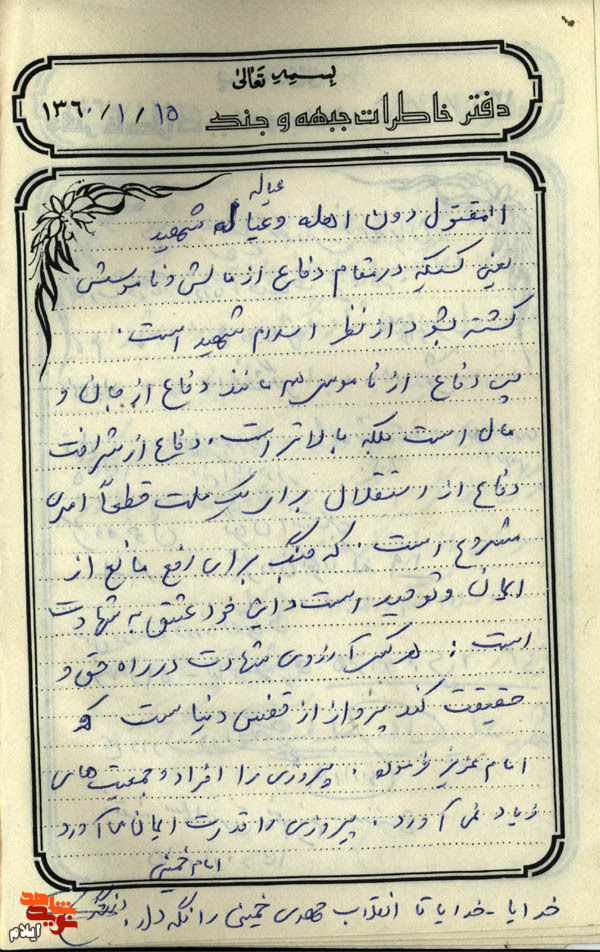 بسمه تعالی
دفتر خاطرات جبهه و جنگ
۱۳۶۰/۱/۱۵
عیاله
المقتول دون اهله و عیاله شهید
یعنی کسیکه در مقام دفاع از مالش و ناموسش
کشته بشود از نظر اسلام شهید است.
پس دفاع از ناموس هم مانند دفاع از جان و
مال است بلکه بالاتر است. دفاع از شرافت
دفاع از استقلال برای یک ملت قطعاً امری
مشروع است. که جنگ برای رفع مانع از
ایمان و توحید است و این خود عشق به شهادت
است: هر کس آرزوی شهادت در راه حق و
حقیقت کند پرواز از قفس دنیا ست که
امام عزیز فرموده. پیروزی را افراد و جمعیت های
زیاد نمی آورد. پیروزی را قدرت ایمان می آورد
امام خمینی
خدایا - خدایا تا انقلاب مهدی خمینی را نگه دار
نوید شاهد
ایلام